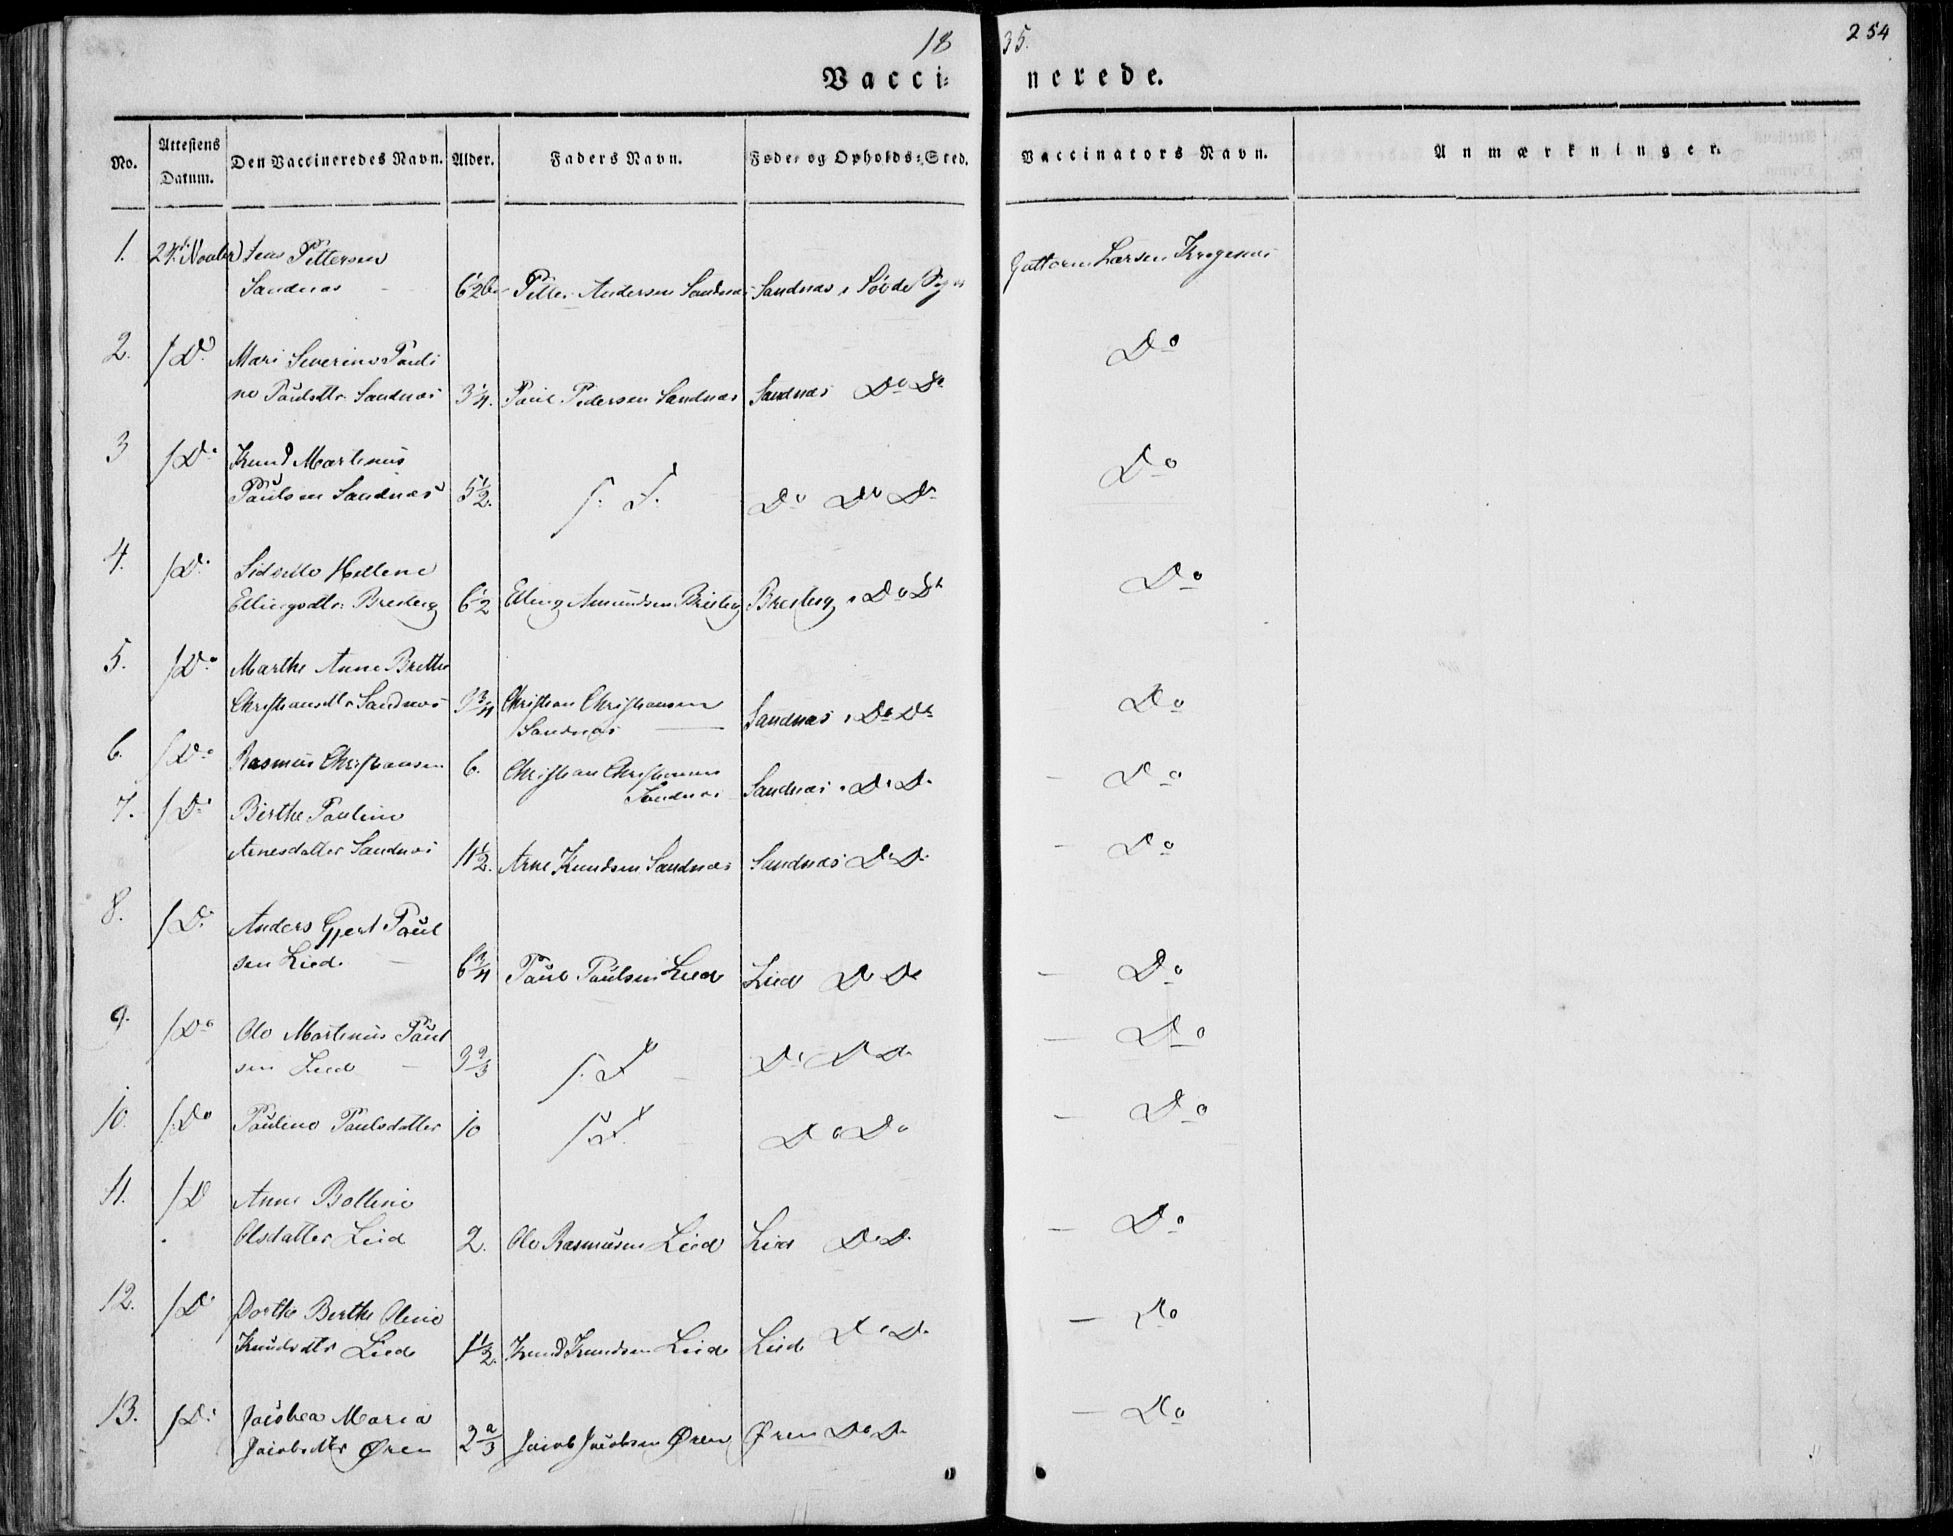 18 35.
254
Vacci= nerede.
No. Attestens Datum. Den Vaccineredes Navn. Alder. Faders Navn. Føde= og Opholds=Sted. Vaccinators Navn. Anmærkninger.
1. 24 Novbr Jens Pettersen
Sandnæs 6½ Petter Andersen Sandnæs Sandnæs i Søvde Guttorm Larsen
2. Do Mari Severine Pauli
ne Paulsdtr. Sandnæs 3¼. Paul Pedersen Sandnæs Sandnæs Do Do Do
3 Do Knud Martinus
Paulsen Sandnæs 5½. Do Do Do Do
4. Do Hellene
Ellingsdtr. 6½ Elling Amundsen Do Do Do
5. Do Marthe Anne Brethe
Christiansdtr Sandnæs 9¾ Christian Christiansen
Sandnæs Sandnæs Do Do Do
6. Do Rasmus Christiansen 6. Christian Christiansen
Sandnæs Sandnæs Do Do Do
7. Do Birthe Pauline
Arnesdatter Sandnæs 11½. Arne Knudsen Sandnæs Sandnæs Do Do Do
8. Do Anders Gjert Paul
sen Lied 6¾ Paul Paulsen Lied Lied Do Do Do
9. Do Ole Martinus Paul
sen Lied Do Do Do Do
10. Do Pauline Paulsdatter 10 Do Do Do
11. Do Anne Bolline
Olsdatter Lied 2. Ole Rasmusen Lied Lied Do Do Do
12. Do Dorthe Berthe Oline
Knudsdtr Lied 1½. Knud Knudsen Lied Lied Do Do Do
13. Do Jacobea Maria
Jacobsdtr Øren 2⅔ Jacob Jacobsen Øren Øren Do Do Do